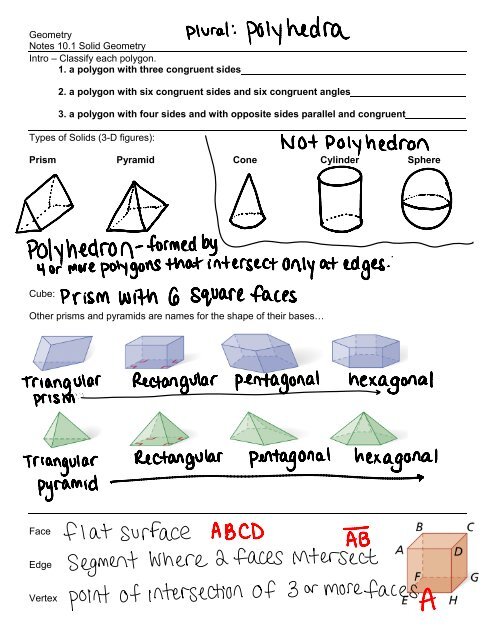 Geometry
Plural: Polyhedra
Notes 10.1 Solid Geometry
Intro – Classify each polygon.
1. a polygon with three congruent sides
2. a polygon with six congruent sides and six congruent angles
3. a polygon with four sides and with opposite sides parallel and congruent
Types of Solids (3-D figures):
Not Polyhedron
Prism Pyramid Cone Cylinder Sphere
Polyhedron - formed by
4 or more polygons that intersect only at edges.
Cube: Prism with 6 square faces
Other prisms and pyramids are names for the shape of their bases…
Triangular Rectangular pentagonal hexagonal
prism
Triangular Rectangular pentagonal hexagonal
pyramid
Face flat surface ABCD AB
Edge Segment where 2 faces intersect
Vertex point of intersection of 3 or more faces A
B C
A D
F G
E H